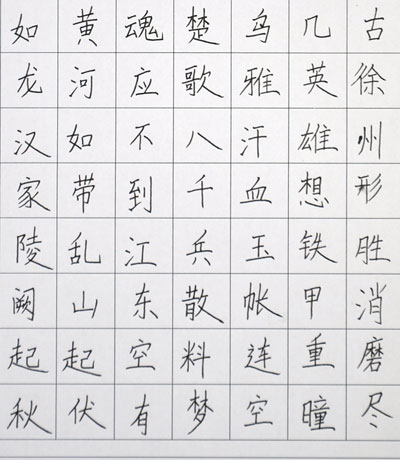 古徐州形胜消磨尽
几英雄想铁甲重瞳
乌雅汗血玉帐连空
楚歌八千兵散料梦
魂应不到江东空有
黄河如带乱山起伏
如龙汉家陵阙起秋